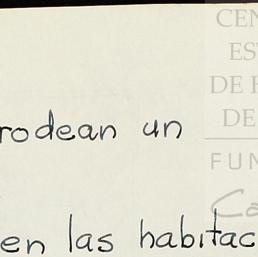 CEN
ES
DE H
DE
FUN
rodean un
Ca
en las habitac